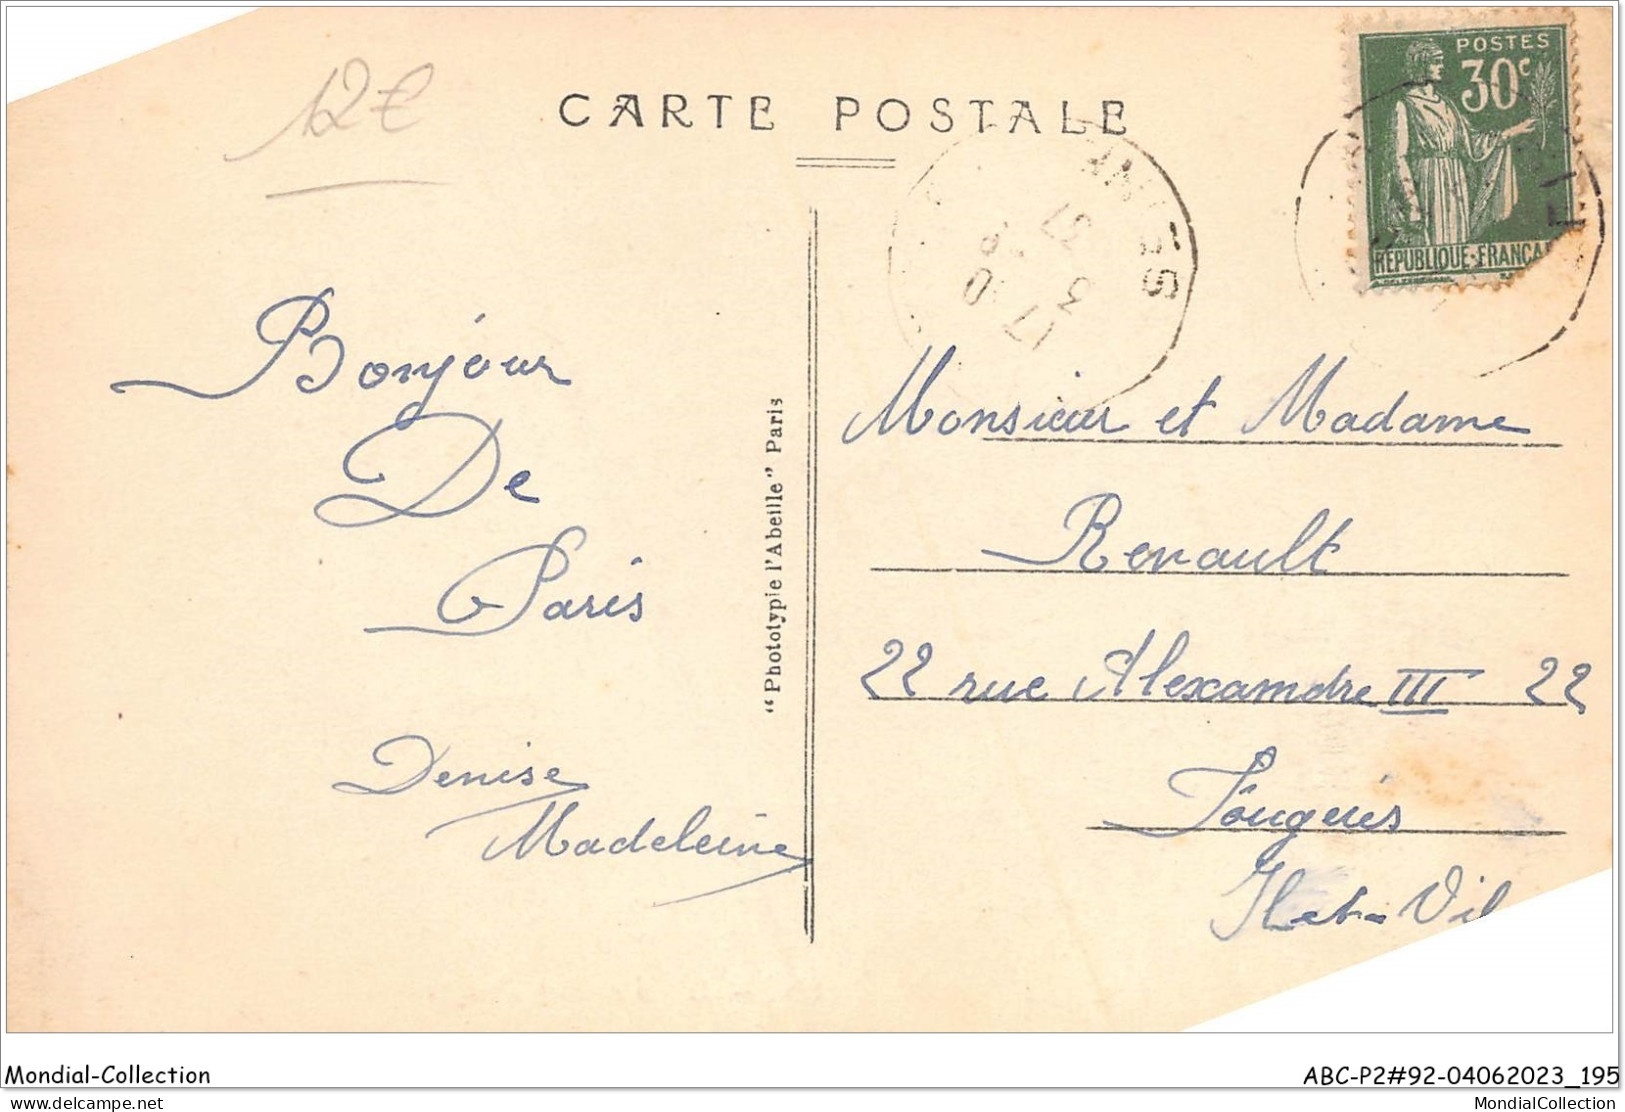 12€
CARTE POSTALE
POSTES
30c
REPUBLIQUE·FRANÇAI
17 0
3
37
Bonjour
De
Paris
Denise
Madeleine
"Phototypie l'Abeille" Paris
Monsieur et Madame
Renault
22 rue Alexandre III 22
Fougeres
Il et-Vil
Mondial-Collection
ABC-P2#92-04062023_195
delcampe.net
MondialCollection